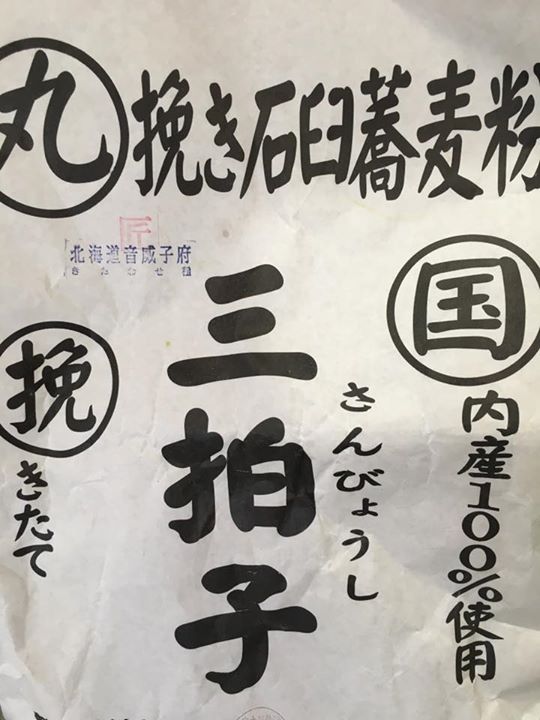 丸挽き石臼蕎麦粉
匠
北海道音威子府
きたわせ種
国内産100%使用
三拍子
さんびょうし
挽きたて